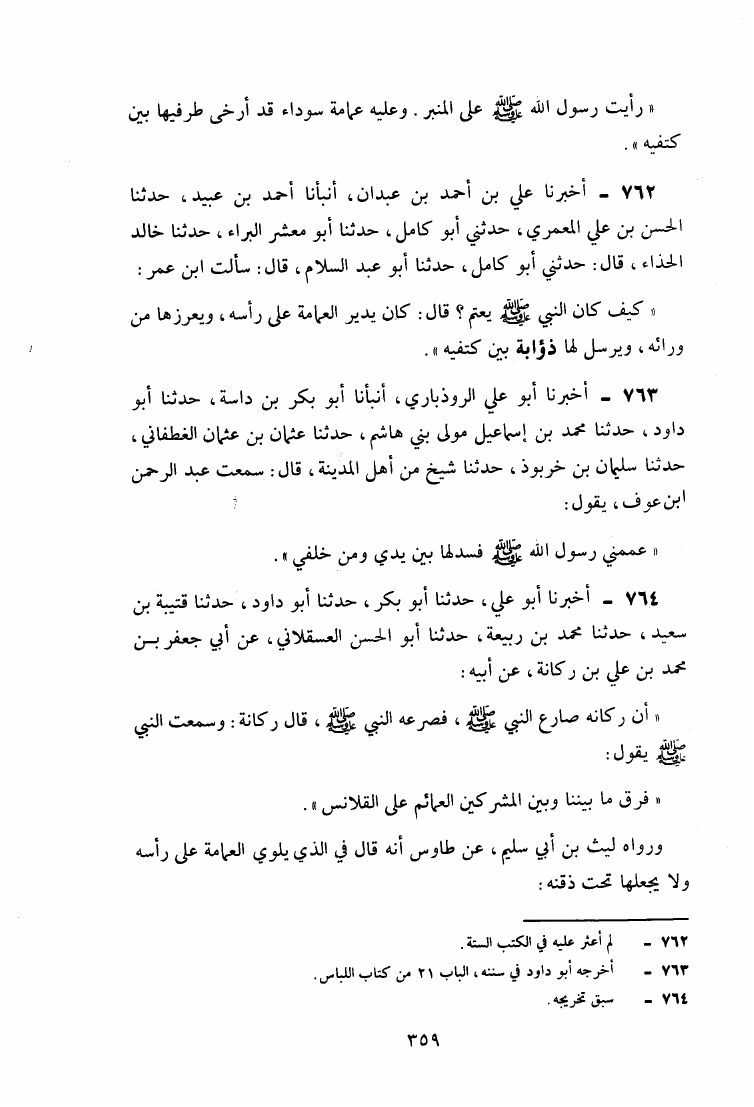 « رأيت رسول الله ﷺ على المنبر . وعليه عمامة سوداء قد أرخى طرفيها بين
كتفيه » .
٧٦٢ – أخبرنا علي بن أحمد بن عبدان، أنبأنا أحمد بن عبيد، حدثنا
الحسن بن علي المعمري، حدثني أبو كامل، حدثنا أبو معشر البراء، حدثنا خالد
الحذاء، قال: حدثني أبو كامل، حدثنا أبو عبد السلام، قال: سألت ابن عمر:
« كيف كان النبي ﷺ يعتم؟ قال: كان يدير العمامة على رأسه، ويعرزها من
ورائه، ويرسل لها ذؤابة بين كتفيه » .
٧٦٣ – أخبرنا أبو علي الروذباري، أنبأنا أبو بكر بن داسة، حدثنا أبو
داود، حدثنا محمد بن إسماعيل مولى بني هاشم، حدثنا عثمان بن عثمان الغطفاني،
حدثنا سليمان بن خربوذ، حدثنا شيخ من أهل المدينة، قال: سمعت عبد الرحمن
ابن عوف، يقول:
« عممني رسول الله ﷺ فسدلها بين يدي ومن خلفي » .
٧٦٤ – أخبرنا أبو علي، حدثنا أبو بكر، حدثنا أبو داود، حدثنا قتيبة بن
سعيد، حدثنا محمد بن ربيعة، حدثنا أبو الحسن العسقلاني، عن أبي جعفر بن
محمد بن علي بن ركانة، عن أبيه:
« أن ركانه صارع النبي ﷺ ، فصرعه النبي ﷺ ، قال ركانة: وسمعت النبي
ﷺ يقول:
« فرق ما بيننا وبين المشركين العمائم على القلانس » .
ورواه ليث بن أبي سليم، عن طاوس أنه قال في الذي يلوي العمامة على رأسه
ولا يجعلها تحت ذقنه:
٧٦٢ – لم أعثر عليه في الكتب الستة.
٧٦٣ – أخرجه أبو داود في سننه، الباب ٢١ من كتاب اللباس.
٧٦٤ – سبق تخريجه.
٣٥٩